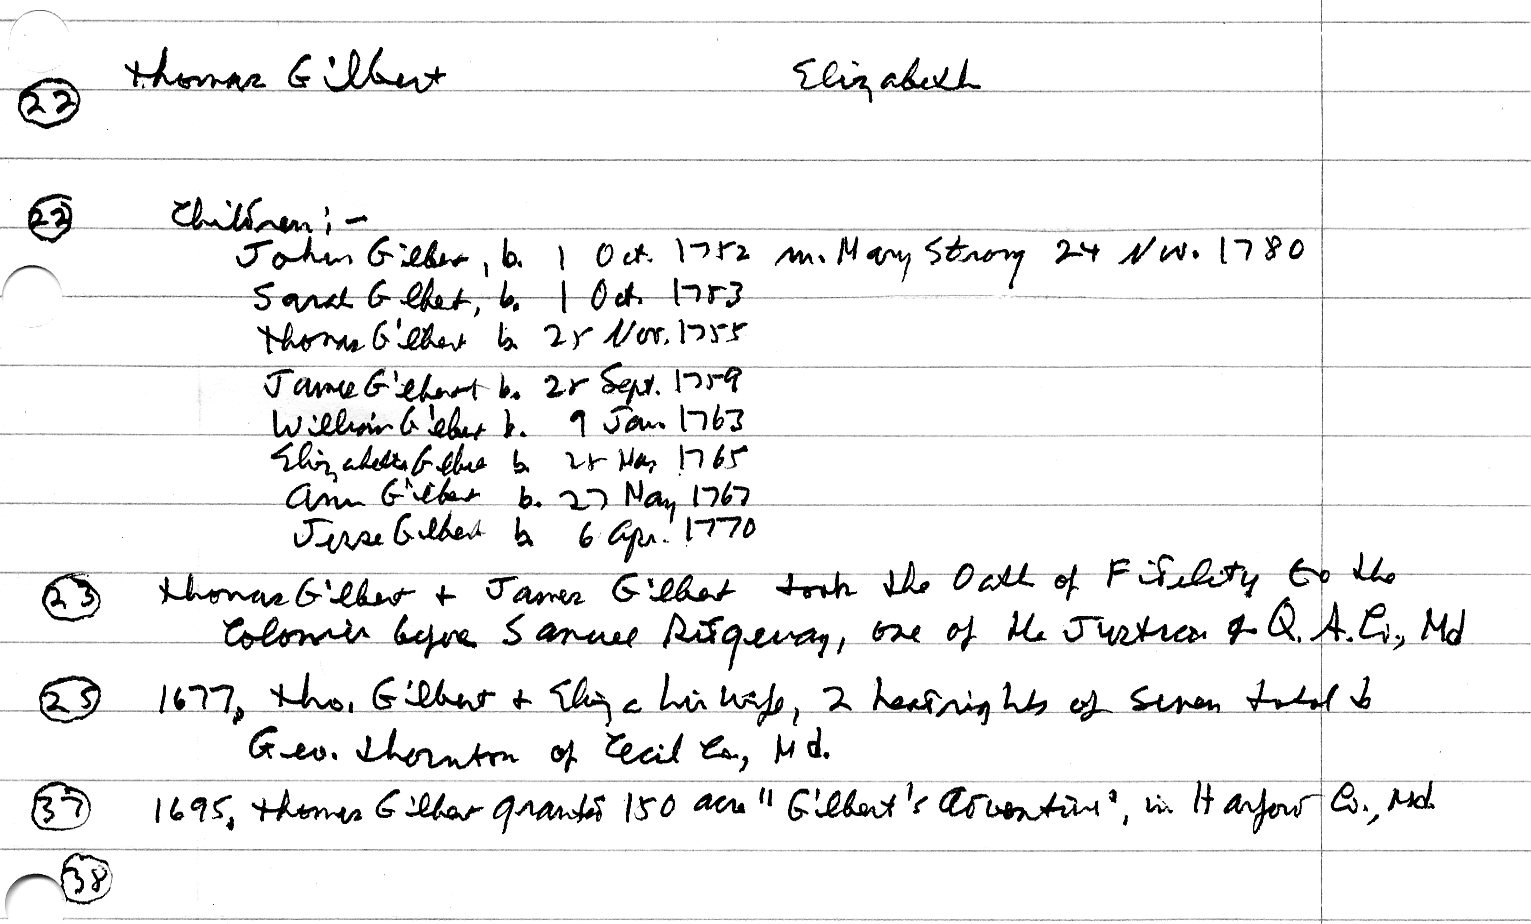 (22) Thomas Gilbert Elizabeth
(22) Children:-
John Gilbert, b. 1 Oct. 1752 m. Mary Strong 24 Nov. 1780
Sarah Gilbert, b. 1 Oct. 1753
Thomas Gilbert b. 25 Nov. 1755
James Gilbert b. 25 Sept. 1759
William Gilbert b. 9 Jan. 1763
Elizabeth Gilbert b. 25 1765
Ann Gilbert b. 27 May 1767
Jesse Gilbert b. 6 Apr. 1770
(23) Thomas Gilbert + James Gilbert took the Oath of Fidelity to the
Colonies before Samuel Ridgeway, one of the Justices of Q. A. Co., Md
(25) 1677, Tho. Gilbert + Eliza his wife, 2 headrights of seven total to
Geo. Thornton of Cecil Co., Md.
(37) 1695, Thomas Gilbert granted 150 acre "Gilbert's Adventure", in Harford Co., Md.
(38)